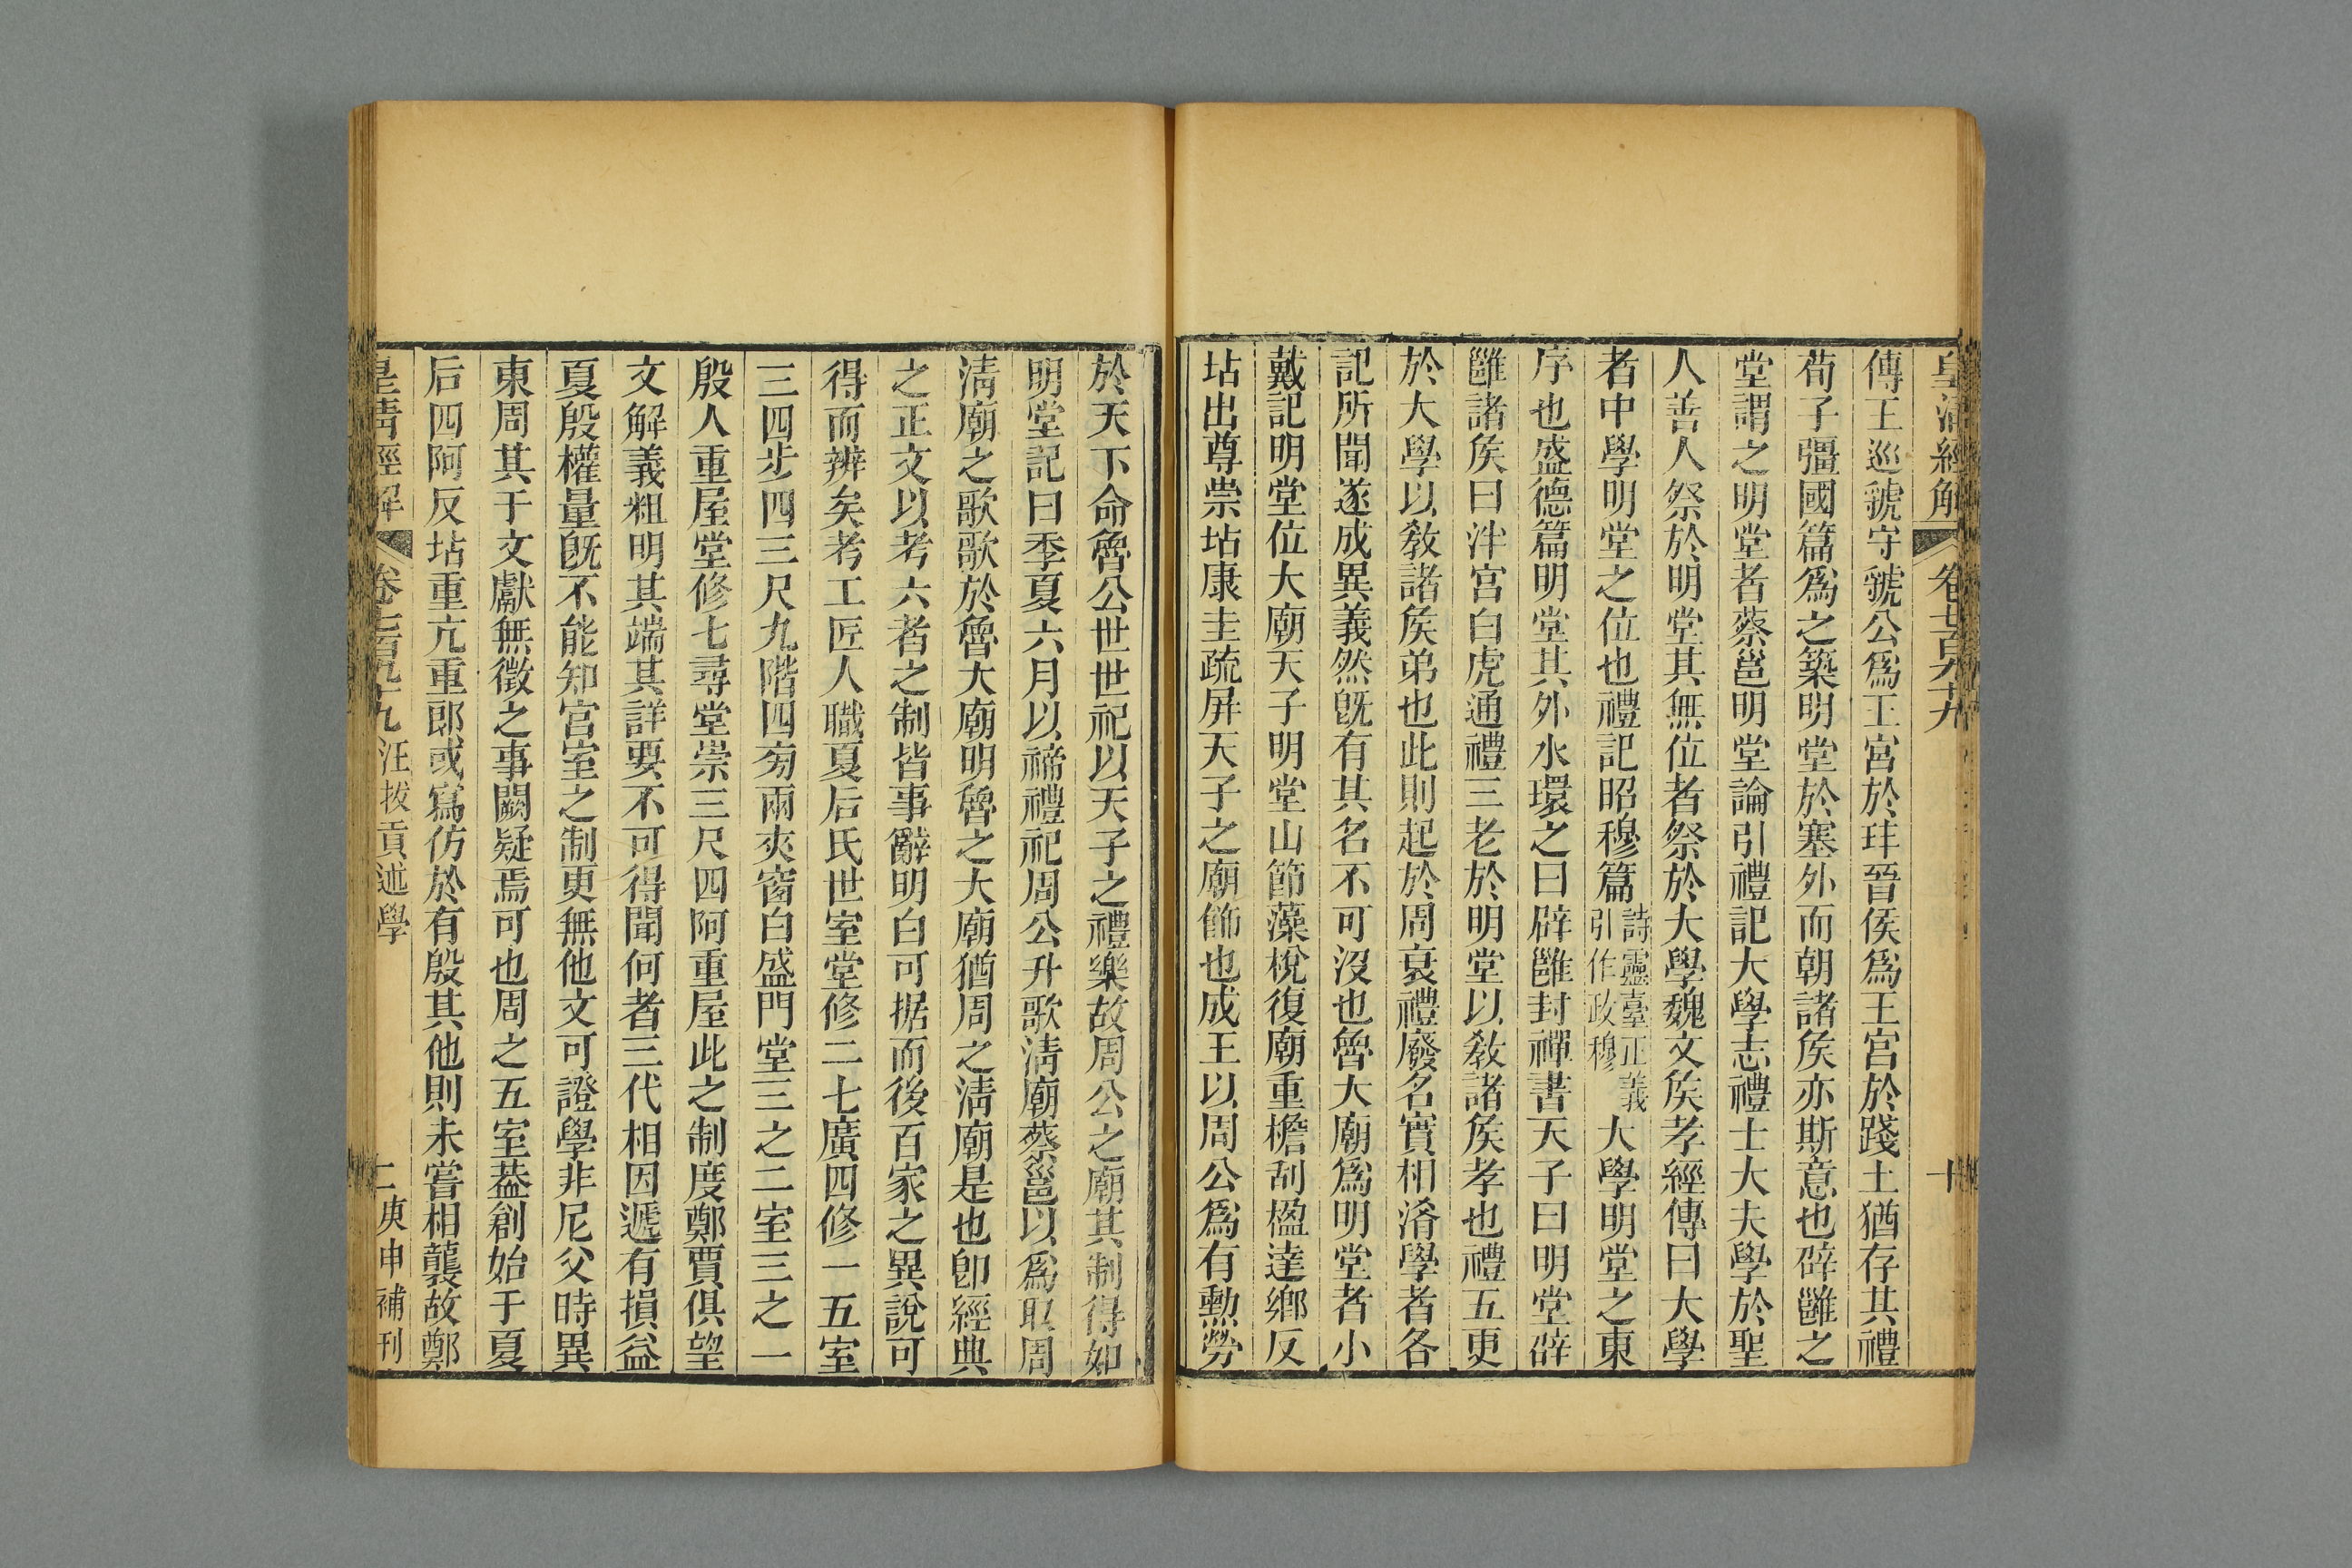 皇清經解 卷七百九十九 十
傳王巡虢守虢公爲王宮於玤晉侯爲王宮於踐土猶存其禮
荀子彊國篇爲之築明堂於塞外而朝諸矦亦斯意也辟雝之
堂謂之明堂者蔡邕明堂論引禮記大學志禮士大夫學於聖
人善人祭於明堂其無位者祭於大學魏文矦孝經傳曰大學
者中學明堂之位也禮記昭穆篇詩靈臺正義引作政穆大學明堂之東
序也盛德篇明堂其外水環之曰辟雝封禪書天子曰明堂辟
雝諸矦曰泮宮白虎通禮三老於明堂以敎諸矦孝也禮五更
於大學以敎諸矦弟也此則起於周衰禮廢名實相淆學者各
記所聞遂成異義然旣有其名不可沒也魯大廟爲明堂者小
戴記明堂位大廟天子明堂山節藻梲復廟重檐刮楹達鄉反
坫出尊崇坫康圭疏屏天子之廟飾也成王以周公爲有勳勞
於天下命魯公世世祀以天子之禮樂故周公之廟其制得如
明堂記曰季夏六月以禘禮祀周公升歌淸廟蔡邕以爲取周
淸廟之歌歌於魯大廟明魯之大廟猶周之淸廟是也卽經典
之正文以考六者之制皆事辭明白可据而後百家之異說可
得而辨矣考工匠人職夏后氏世室堂修二七廣四修一五室
三四步四三尺九階四旁兩夾窗白盛門堂三之二室三之一
殷人重屋堂修七尋堂崇三尺四阿重屋此之制度鄭賈俱望
文解義粗明其端其詳要不可得聞何者三代相因遞有損益
夏殷權量旣不能知宮室之制更無他文可證學非尼父時異
東周其于文獻無徵之事闕疑焉可也周之五室葢創始于夏
后四阿反坫重亢重郎或寫仿於有殷其他則未嘗相襲故鄭
皇清經解 卷七百九十九 汪拔貢述學 二 庚申補刊